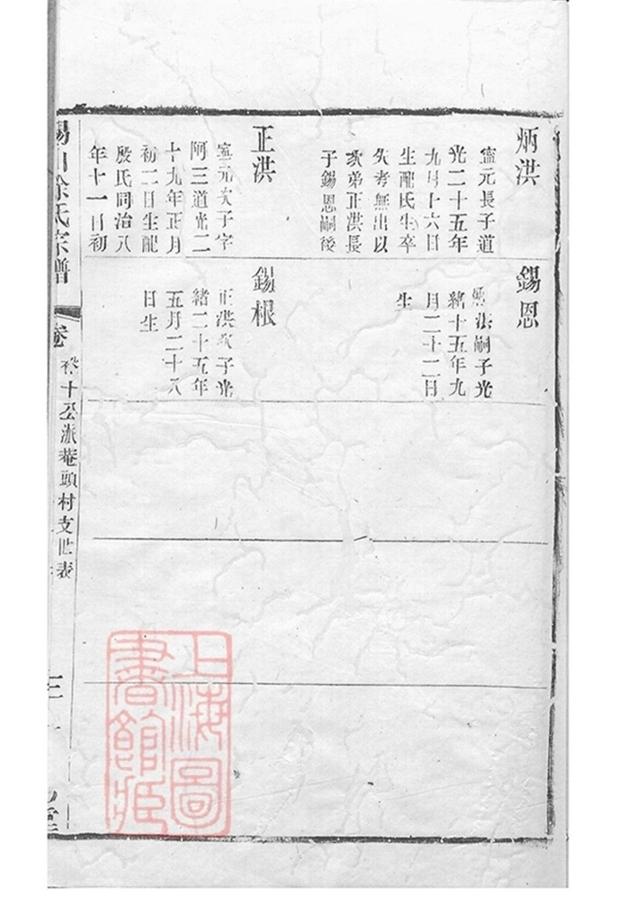 炳洪
寔元長子道
光二十五年
九月十六日
生配氏生卒
失考無出以
次弟正洪長
子錫恩嗣後
錫恩
炳洪嗣子光
緒十五年九
月二十二日
生
正洪
寔元次子字
阿三道光二
十九年正月
初二日生配
殷氏同治八
年十一日初
錫根
正洪次子光
緒二十五年
五月二十八
日生
錫山徐氏宗譜
卷
十公派菴頭村支世表
三
上海圖
書館藏